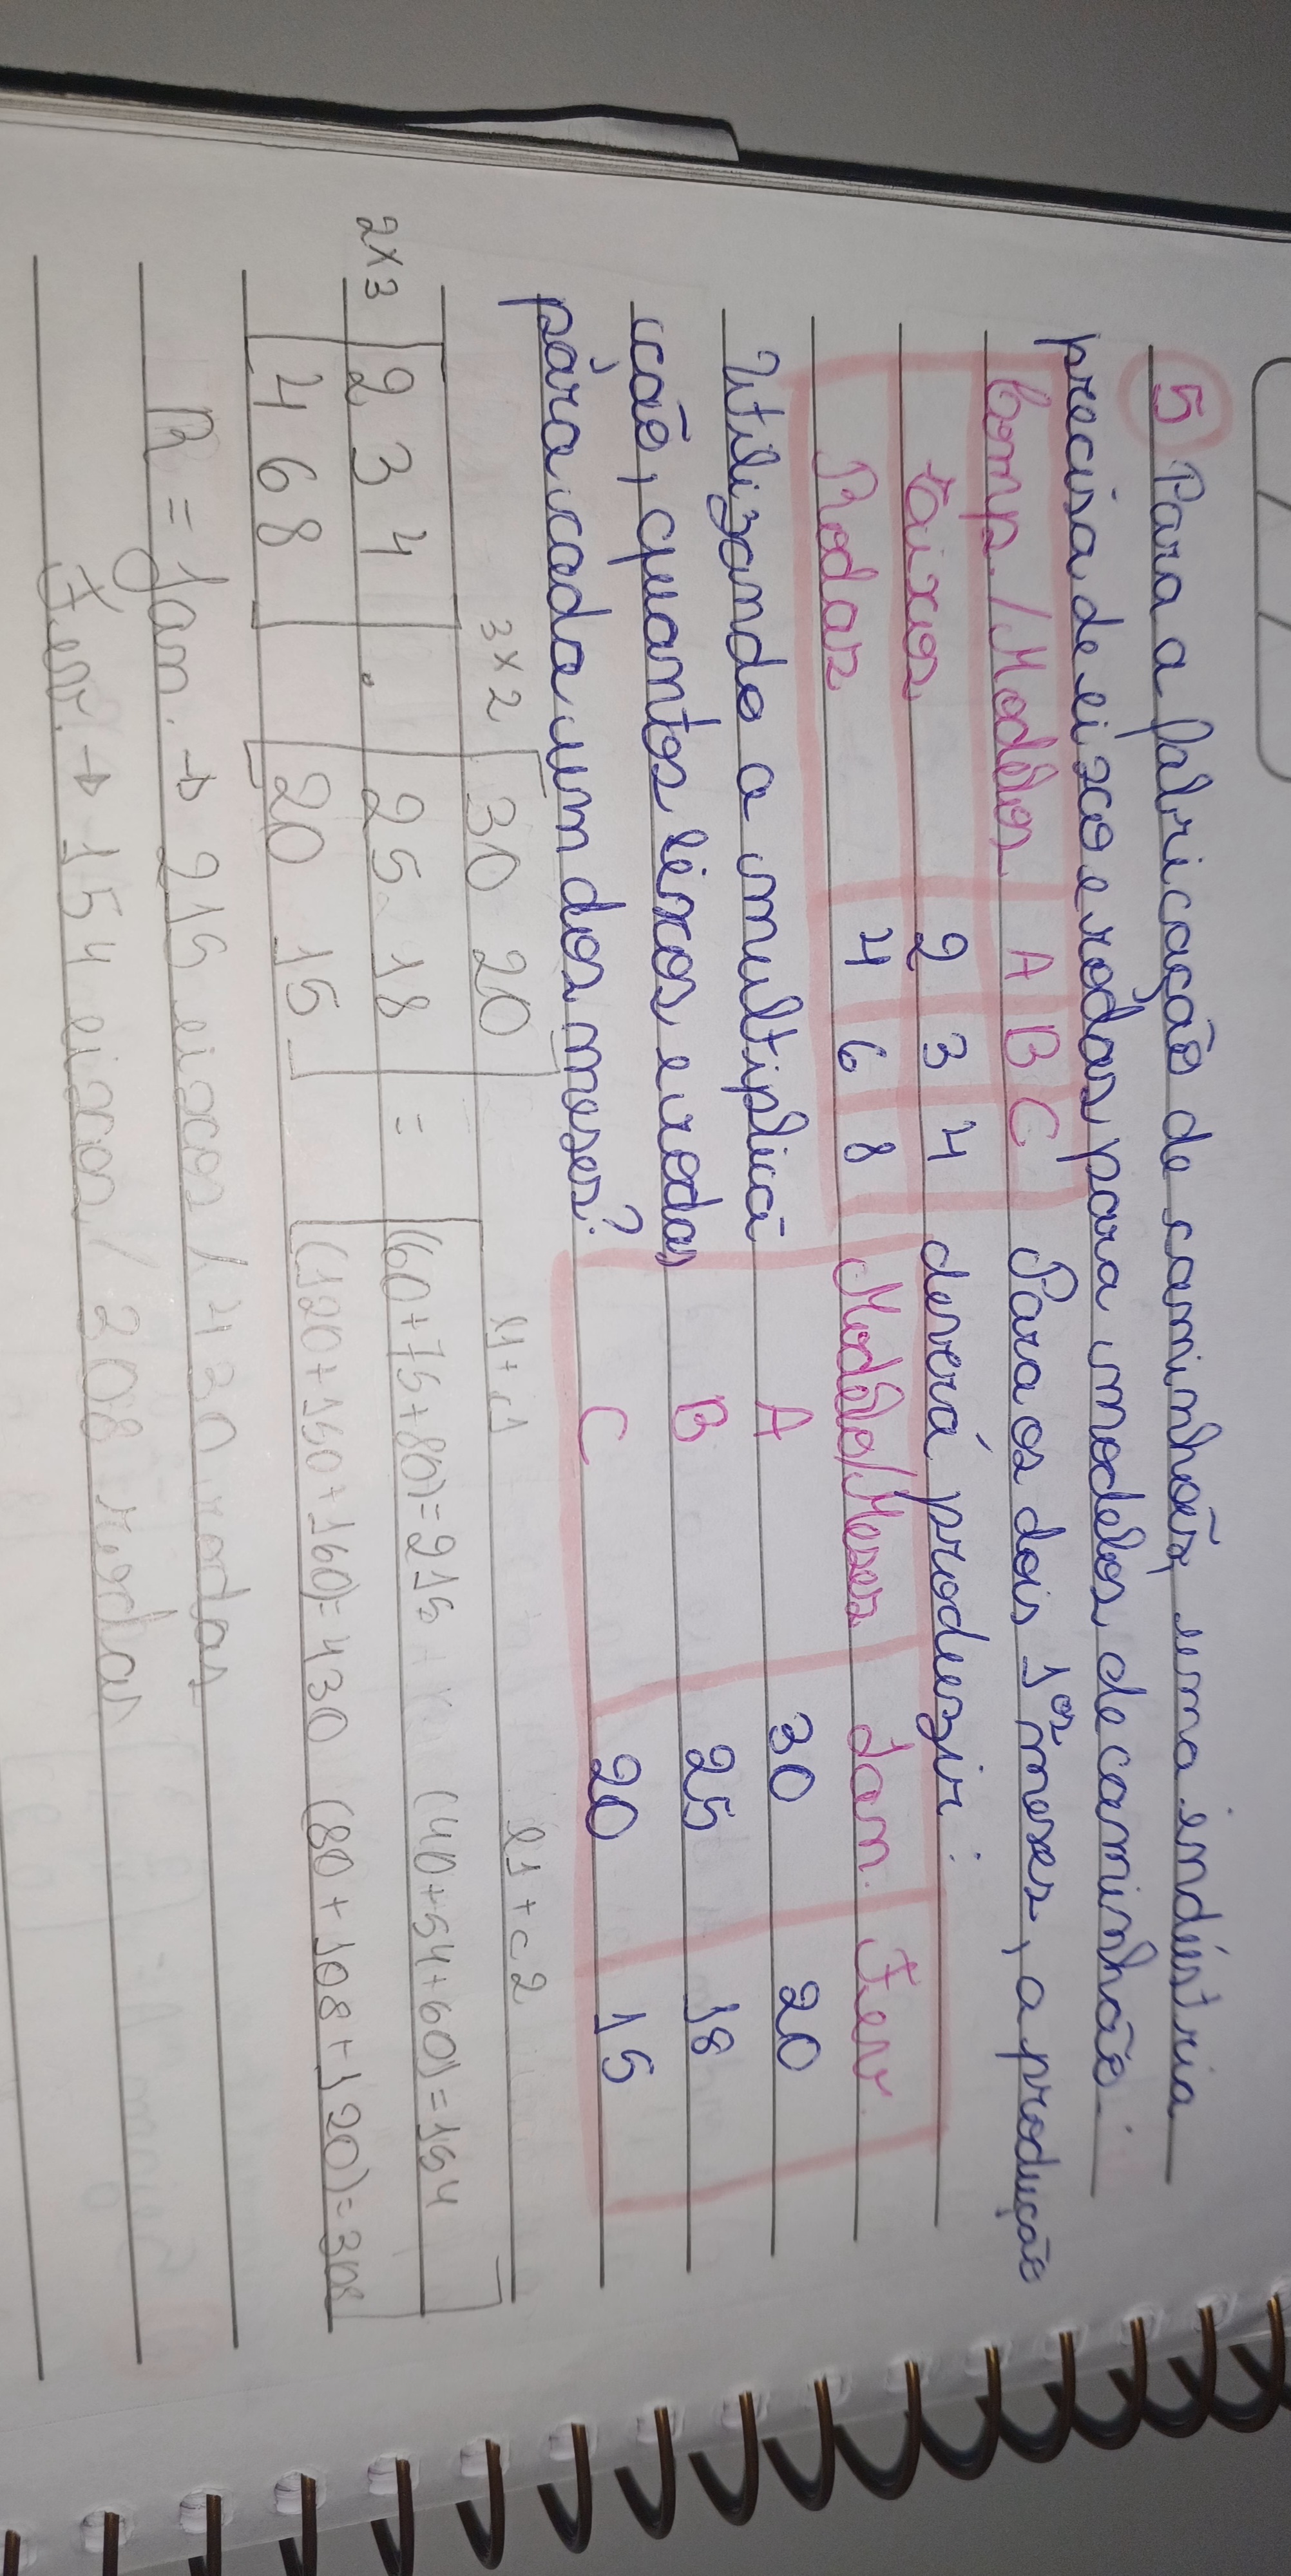 5 Para a fabricação de caminhões, uma indústria
precisa de eixo e rodas para modelos de caminhão:
Comp./Modelos A B C
Eixos 2 3 4
Rodas 4 6 8
Para os dois 1os meses, a produção
deverá produzir:
Modelo/Meses Jan. Fev.
A 30 20
B 25 18
C 20 15
Utilizando a multiplica
cção, quantos eixos e rodas
para cada um dos meses?
2x3 [2 3 4
4 6 8] . 3x2 [30 20
25 18
20 15] =
l1+c1 l1+c2
(60+75+80)=215 (40+54+60)=154
(120+150+160)=430 (80+108+120)=308
R = Jan. → 215 eixos / 430 rodas
Fev. → 154 eixos / 308 rodas